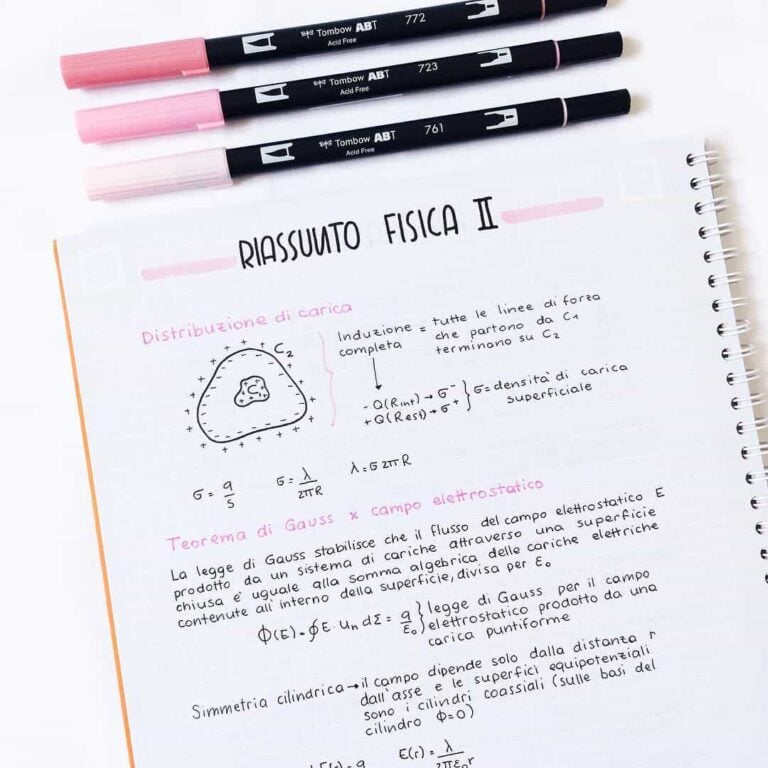 Tombow ABT 772
Acid Free
Tombow ABT 723
Acid Free
Tombow ABT 761
Acid Free
RIASSUNTO FISICA II
Distribuzione di carica
C₂
C₁
Induzione completa = tutte le linee di forza
che partono da C₁
terminano su C₂
- Q(Rint) → σ⁻
+ Q(Rest) → σ⁺
σ = densità di carica
superficiale
σ = q/S
σ = λ/2πR
λ = σ 2πR
Teorema di Gauss x campo elettrostatico
La legge di Gauss stabilisce che il flusso del campo elettrostatico E
prodotto da un sistema di cariche attraverso una superficie
chiusa e' uguale alla somma algebrica delle cariche elettriche
contenute all'interno della superficie, divisa per ε₀
Φ(E) = ∮E · uₙ dΣ = q/ε₀
legge di Gauss per il campo
elettrostatico prodotto da una
carica puntiforme
Simmetria cilindrica → il campo dipende solo dalla distanza r
dall'asse e le superfici equipotenziali
sono i cilindri coassiali (sulle basi del
cilindro Φ=0)
E(r) = λ/2πε₀r